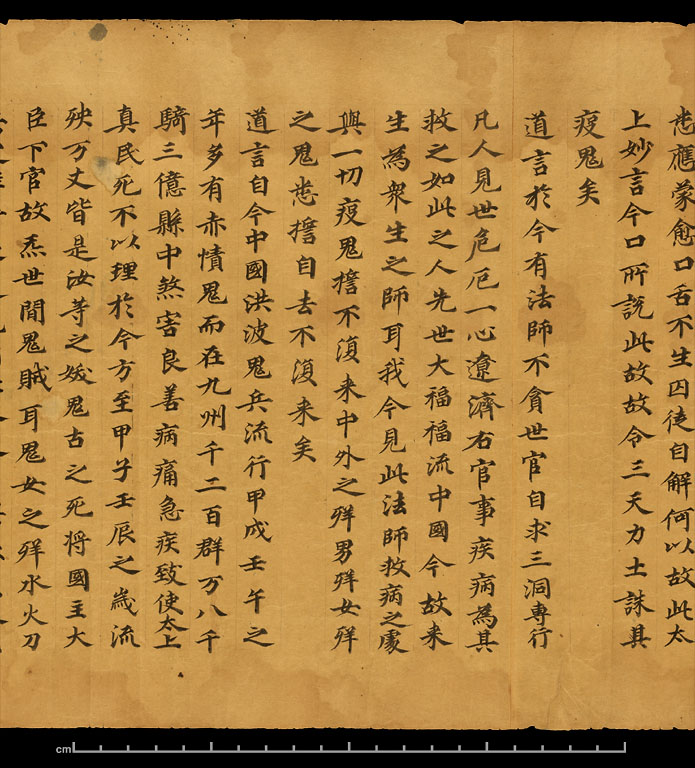 恚應蒙愈口舌不生囚徒自解何以故此太
上妙言今口所說此故故令三天力士誅其
疫鬼矣
道言於今有法師不貪世官自求三洞專行
凡人見世危厄一心遼濟右官事疾病為其
救之如此之人先世大福福流中國今故来
生為衆生之師耳我今見此法師救病之處
與一切疫鬼擔不復来中外之殜男殜女殜
之鬼悉擔自去不復来矣
道言自今中國洪波鬼兵流行甲戌壬午之
年多有赤幘鬼而在九州千二百群万八千
騎三億縣中煞害良善病痛急疾致使太上
真民死不以理於今方至甲子壬辰之嵗流
殃万丈皆是汝等之 鬼古之死将國主大
臣下官故炁世間鬼賊耳鬼女之殜水火刀